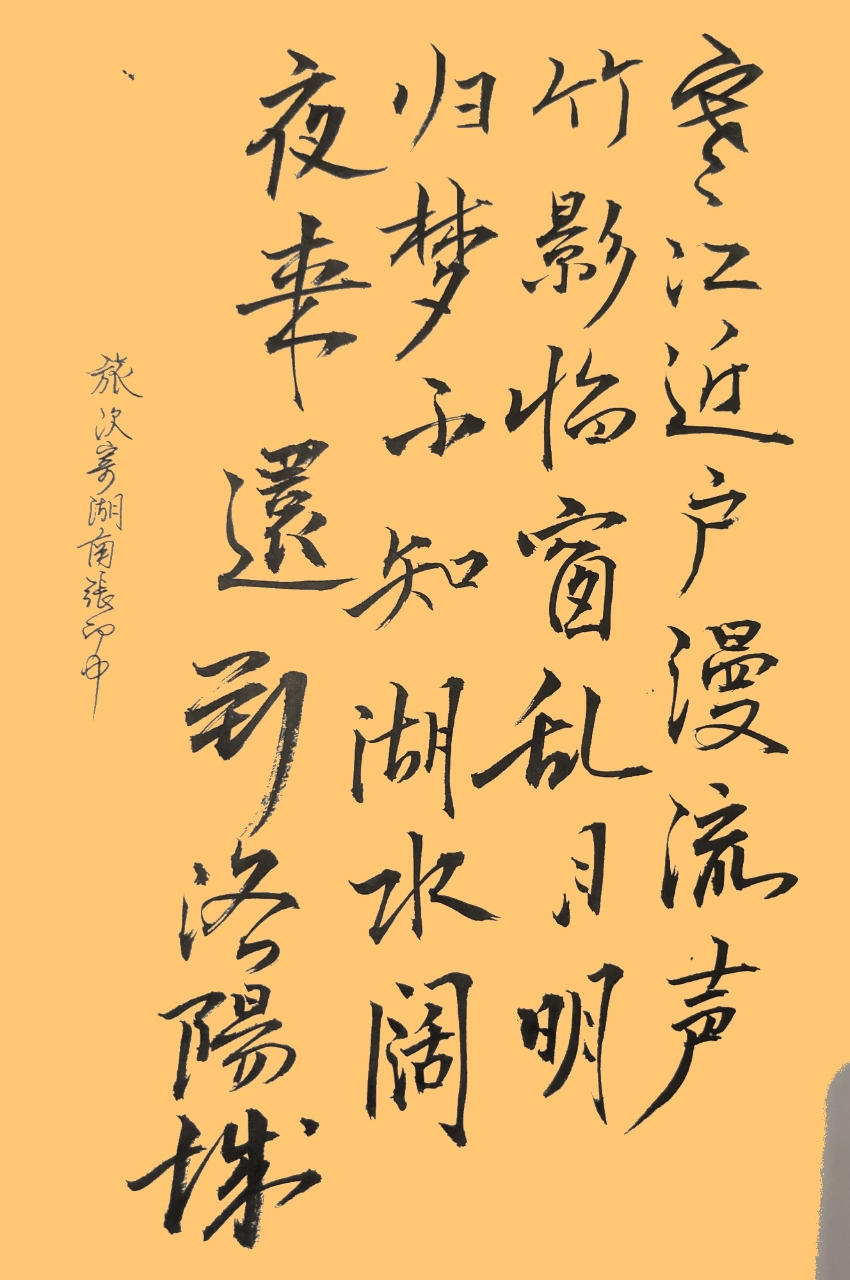 寒江近户漫流声
竹影临窗乱月明
归梦不知湖水阔
夜来還到洛陽城
旅次寄湖南張郎中